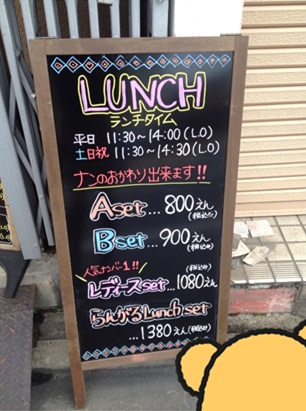 LUNCH
ランチタイム
平日 11:30~14:00(L.O)
土日祝 11:30~14:30(L.O)
ナンのおかわり出来ます!!
Aset...800えん(税込み)
Bset...900えん(税込み)
人気ナンバー1!!
レディースset...1080えん(税込み)
らんがるLunch set
...1380えん(税込み)